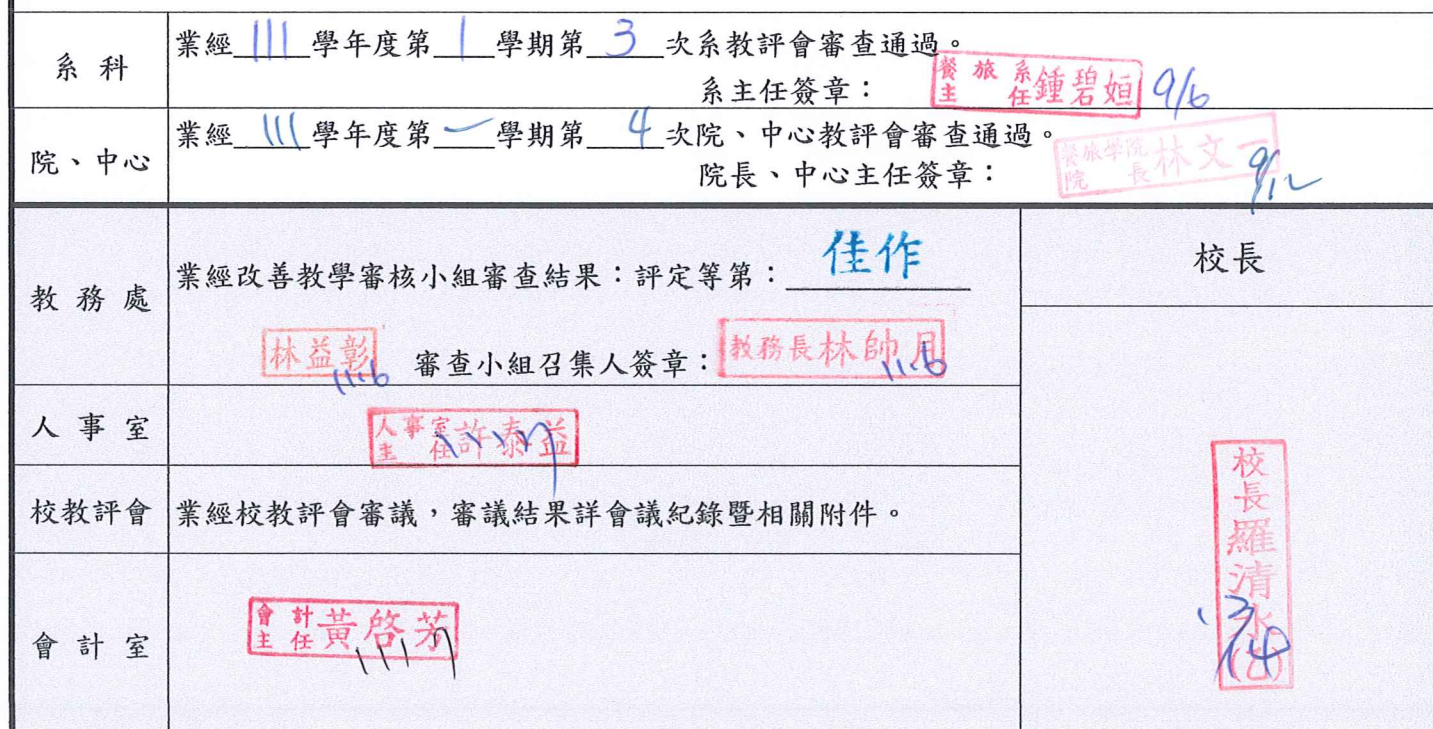 系科
業經 111 學年度第 1 學期第 3 次系教評會審查通過。
系主任簽章： 餐旅系主任 鍾碧姮 9/6
院、中心
業經 111 學年度第 一 學期第 4 次院、中心教評會審查通過。
院長、中心主任簽章： 餐旅學院院長 林文一 9/12
教務處
業經改善教學審核小組審查結果：評定等第： 佳作
林益彰 11.6 審查小組召集人簽章： 教務長林帥月 11.6
校長
人事室
人事室主任 許泰益
校教評會
業經校教評會審議，審議結果詳會議紀錄暨相關附件。
會計室
會計主任 黃啓芳
校長羅清水(乙)